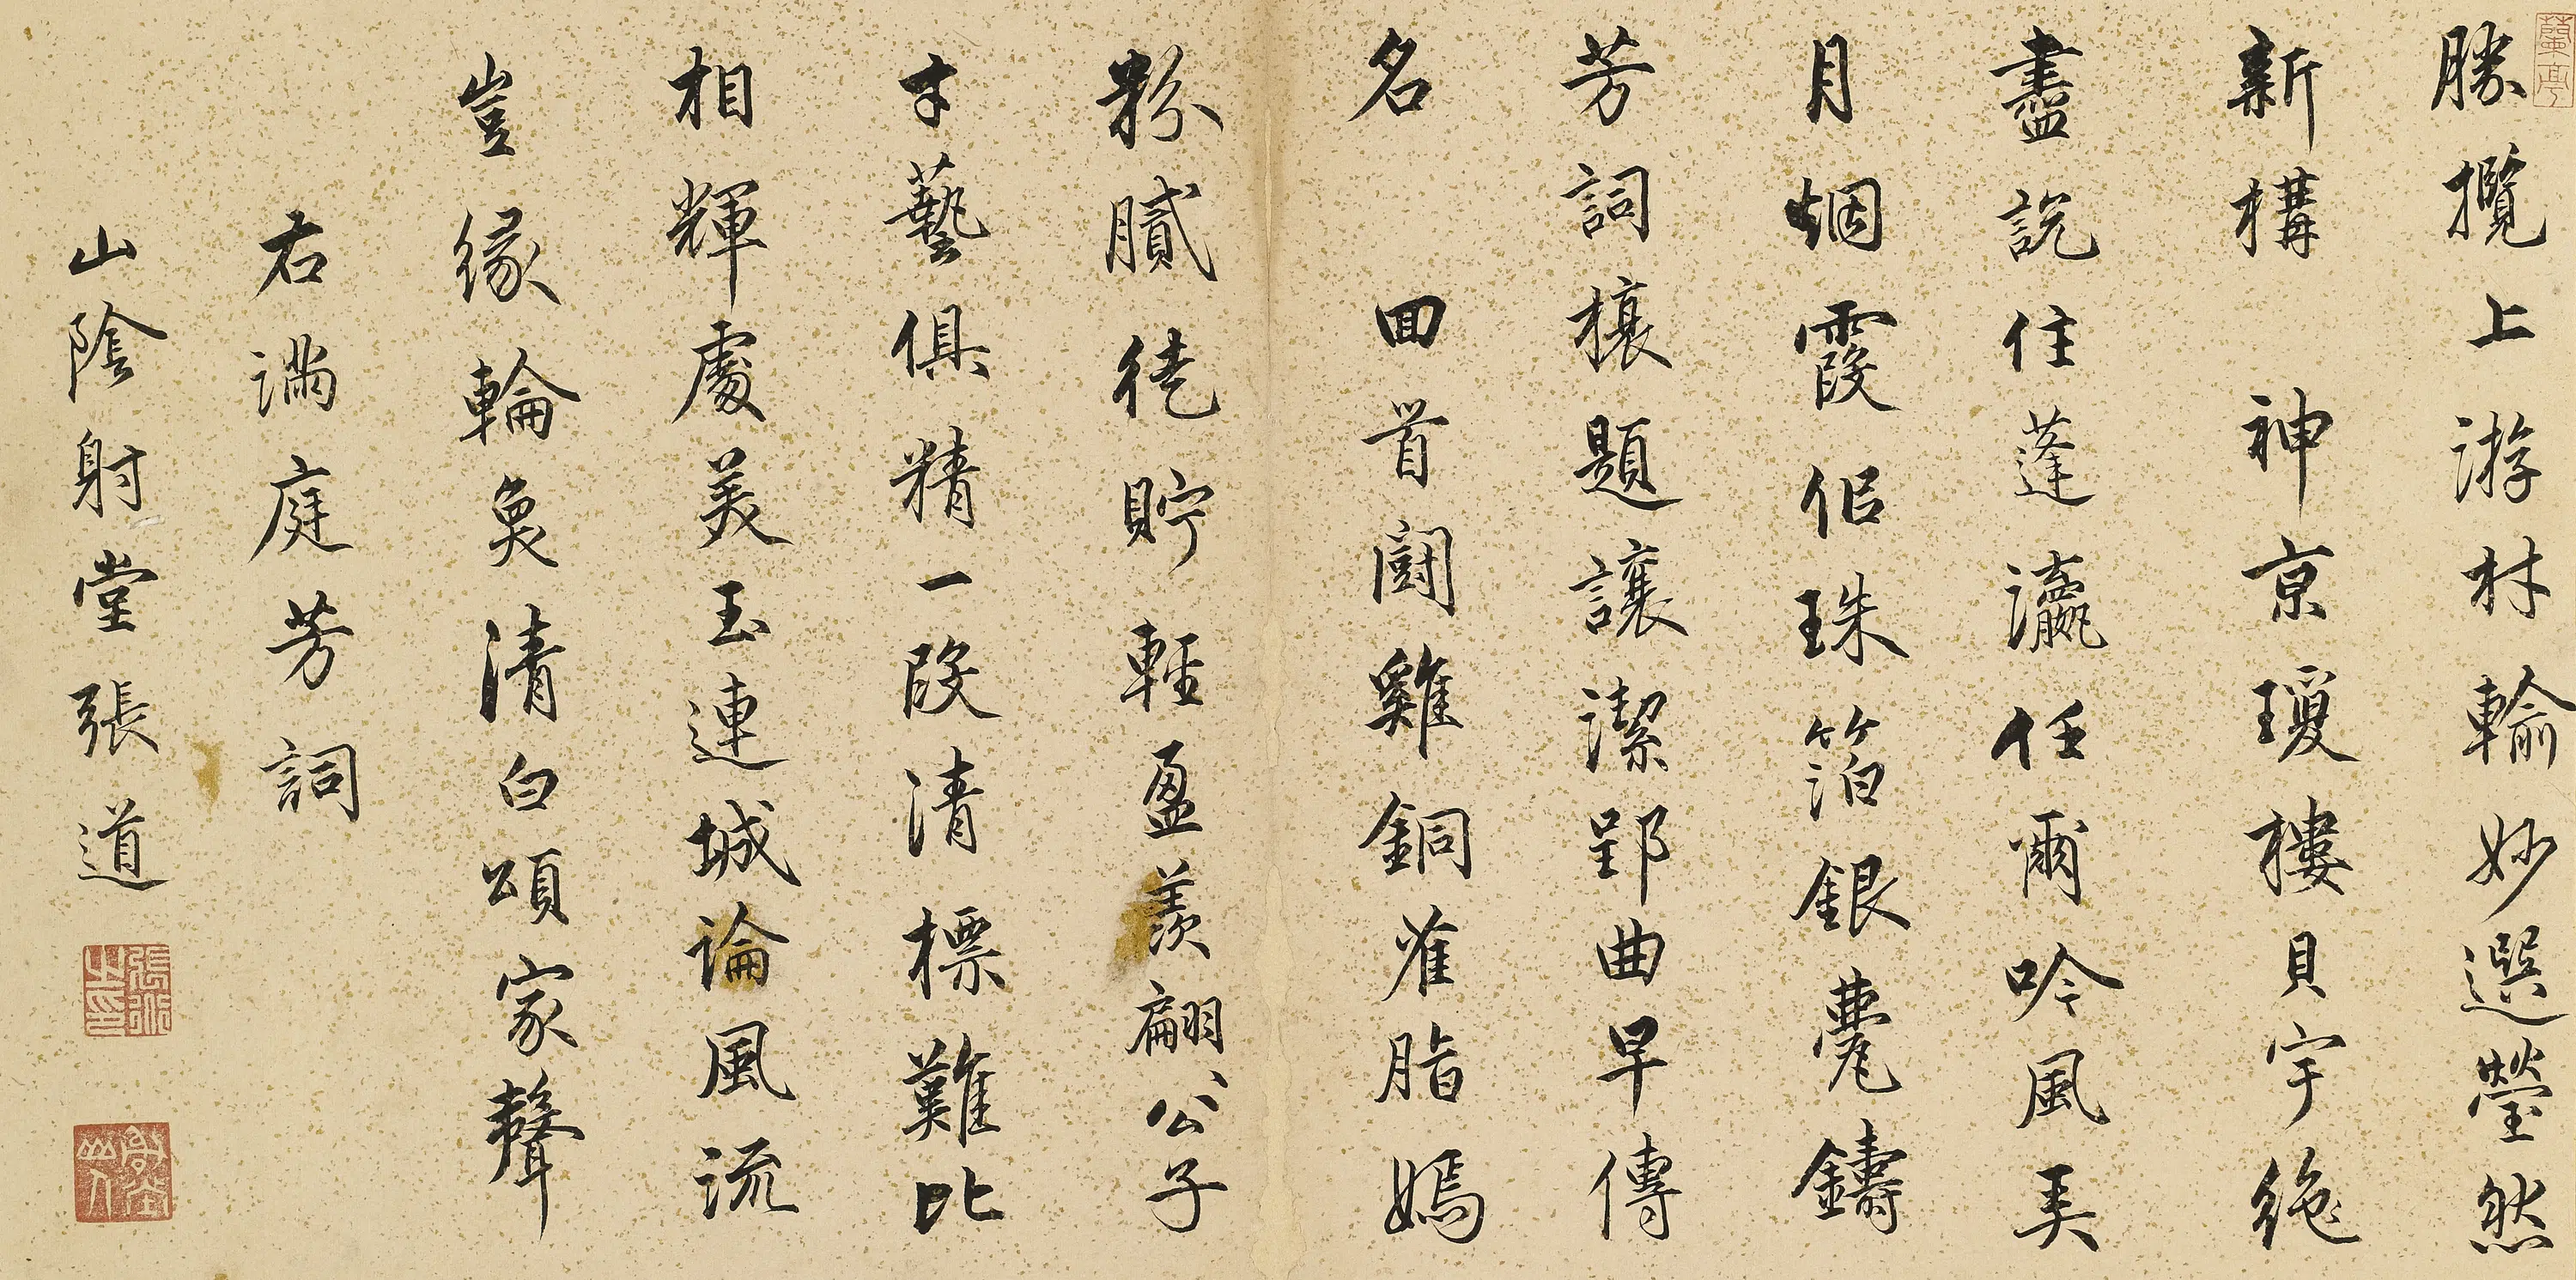 蘭亭
勝攬上游材輸妙選瑩然
新構 神京瓊樓貝宇絶
盡說住蓬瀛任爾吟風弄
月烟霞侣珠箔銀甍鑄
芳詞榱題讓潔郢曲早傳
名 回首鬪雞銅雀脂嫣
粉膩徒貯輕盈羡翩、公子
才藝俱精一段清標難比
相輝處美玉連城論風流
豈緣輪奐清白頌家聲
右滿庭芳詞
山陰射堂張道
射堂山人